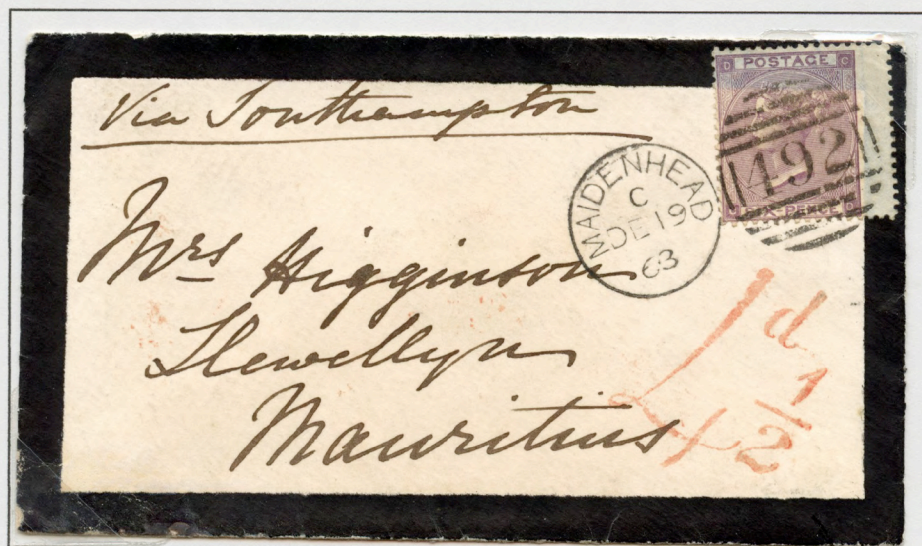 Via Southampton
D POSTAGE C
492
SIX-PENCE
MAIDENHEAD
C
DE 19
63
Mrs Higginson
Llewellyn
Mauritius
4 1/2 d